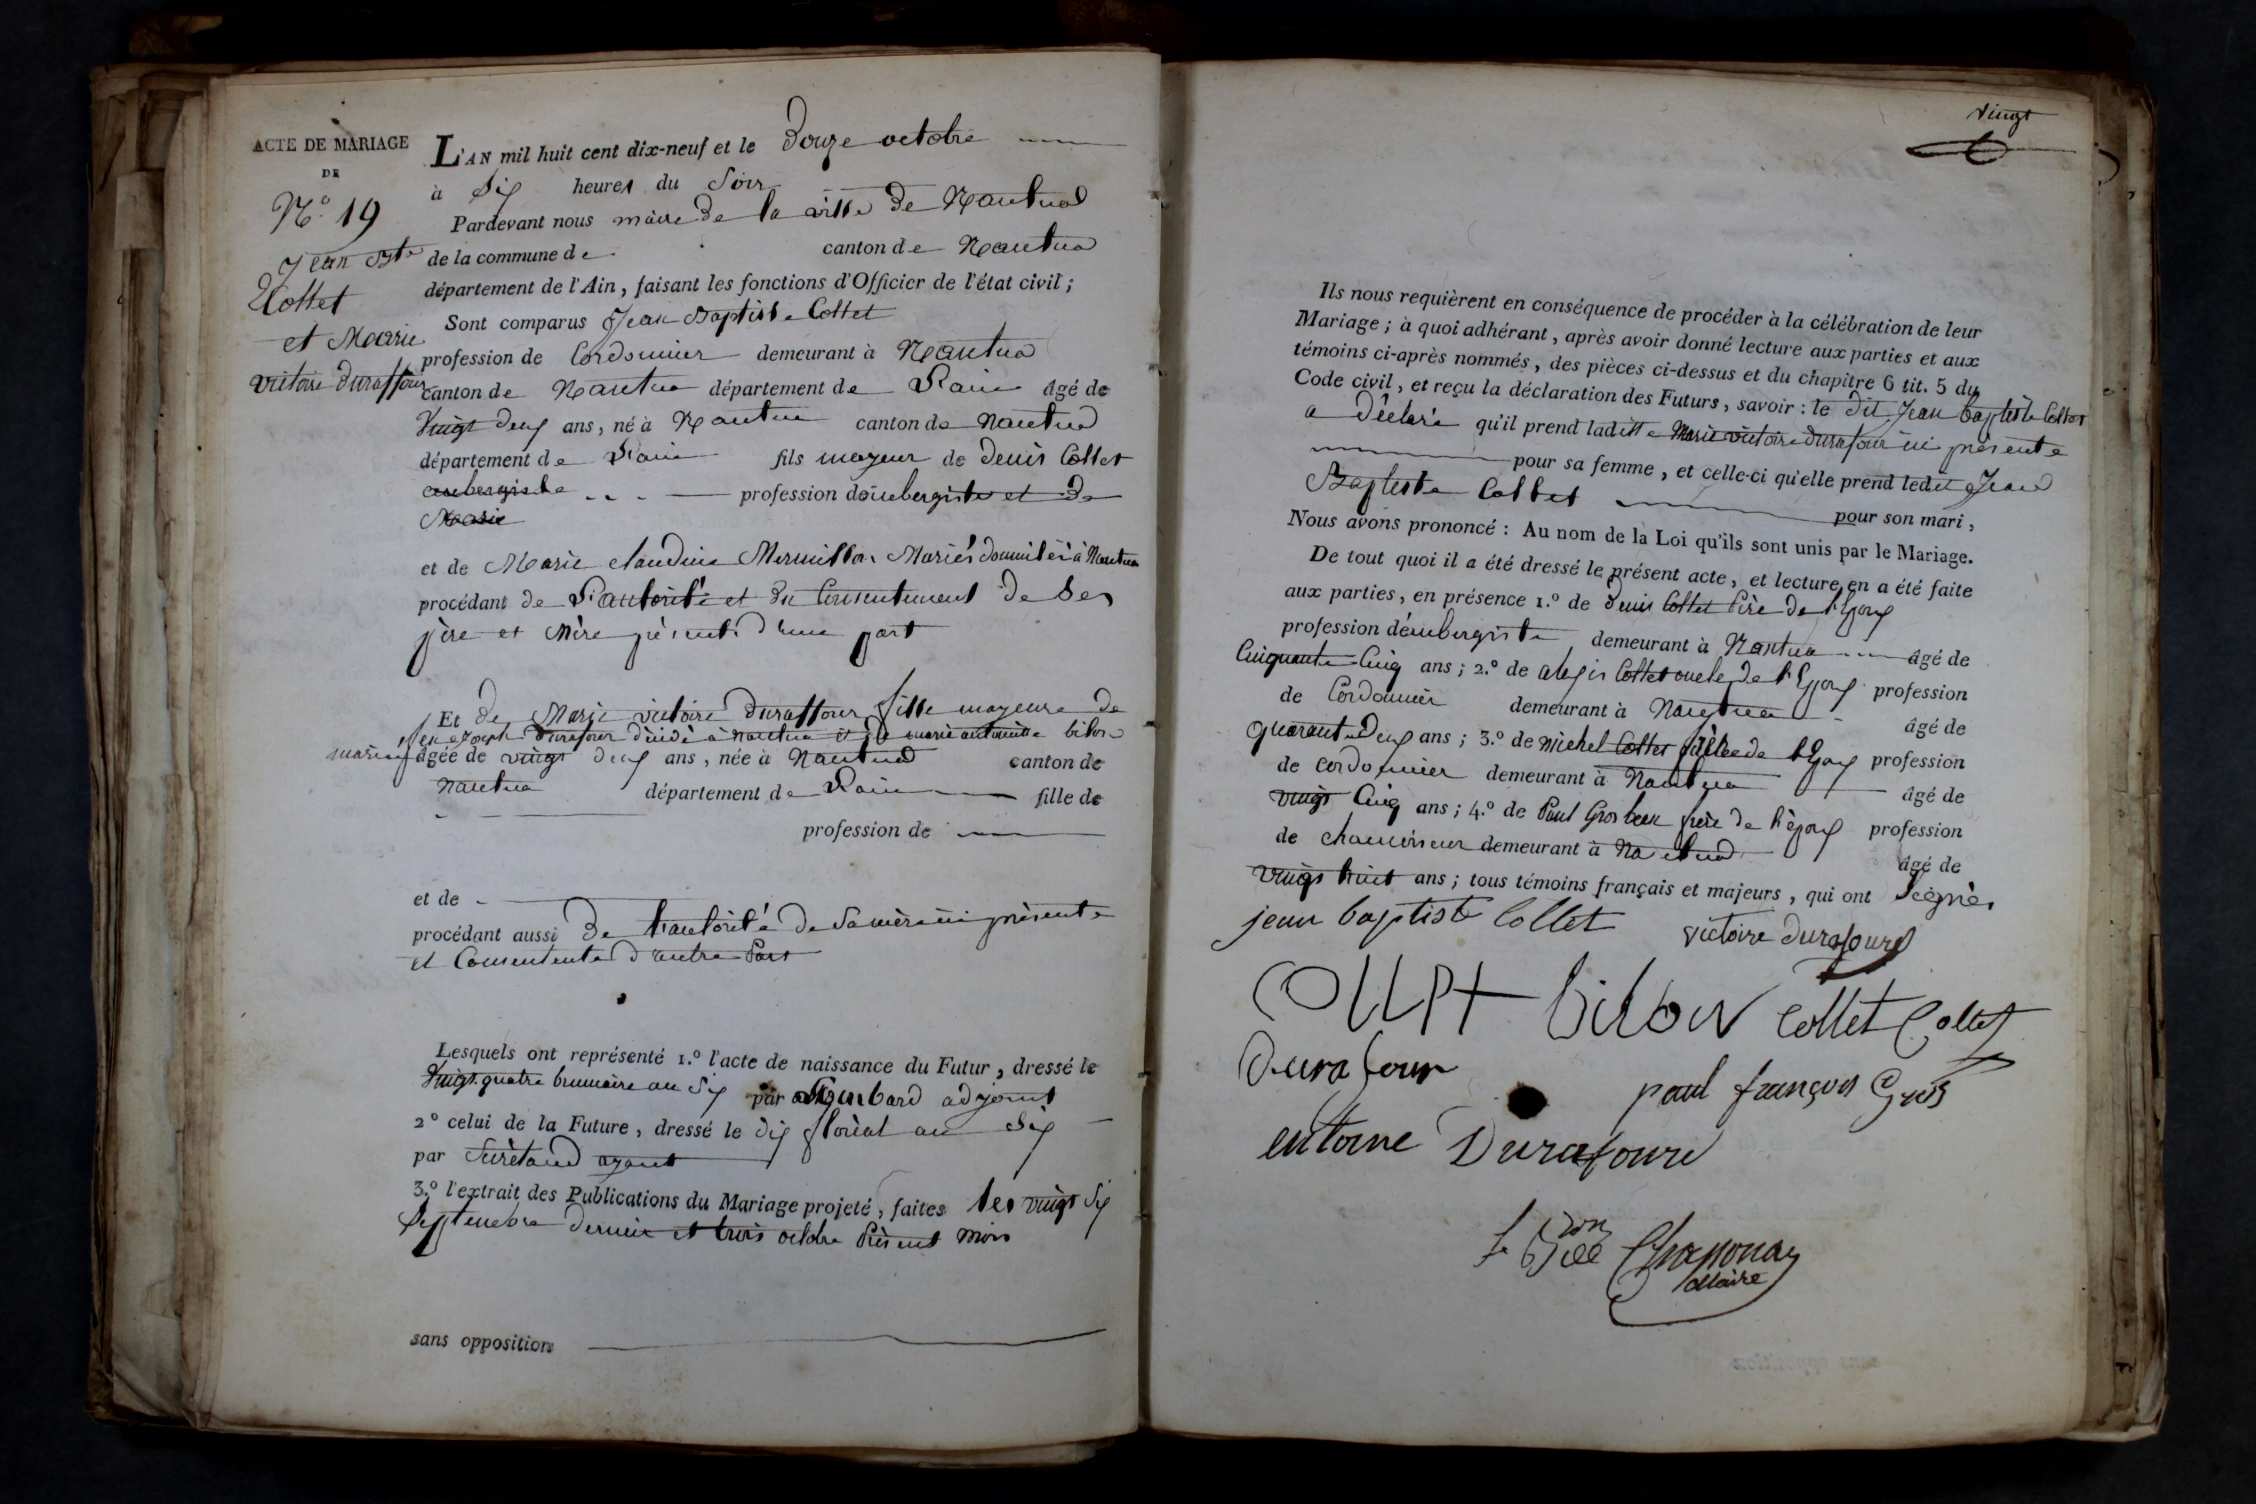 ACTE DE MARIAGE
DE
N.o 19
Jean Bte
Collet
et Marie
victoire duraffour
L'AN mil huit cent dix-neuf et le Douze octobre
à Six heures du Soir
Pardevant nous maire de la ville de Nantua
de la commune de canton de Nantua
département de l'Ain, faisant les fonctions d'Officier de l'état civil;
Sont comparus Jean Baptiste Collet
profession de Cordonnier demeurant à Nantua
canton de Nantua département de L'ain âgé de
Vingt deux ans, né à Nantua canton de Nantua
département de L'ain fils mayeur de Denis Collet
aubergiste profession d'aubergiste et de
Marie
et de Marie claudine Mermillon Mariés domiciliés à Nantua
procédant de L'autorité et du Consentement de Ses
père et Mère présents d'une part
Et de Marie victoire Duraffour fille mayeure de
feu Joseph Durafour décédé à nantua et de marie antoinette bilon
mariés âgée de vingt deux ans, née à Nantua canton de
Nantua département de L'ain fille de
profession de
et de
procédant aussi De L'autorité de Sa mère ici présente
et Consentente d'autre Part
Lesquels ont représenté 1.o l'acte de naissance du Futur, dressé le
Vingt quatre brumaire an Six par adjoint
2o celui de la Future, dressé le dix floréal an Six
par
3.o l'extrait des Publications du Mariage projeté, faites les vingt Six
Septembre dernier et trois octobre Présent mois
sans opposition
vingt
Ils nous requièrent en conséquence de procéder à la célébration de leur
Mariage; à quoi adhérant, après avoir donné lecture aux parties et aux
témoins ci-après nommés, des pièces ci-dessus et du chapitre 6 tit. 5 du
Code civil, et reçu la déclaration des Futurs, savoir: le dit Jean baptiste Collet
a Déclaré qu'il prend laditte Marie victoire durafour ici présente
pour sa femme, et celle-ci qu'elle prend ledit Jean
Baptiste Collet pour son mari,
Nous avons prononcé: Au nom de la Loi qu'ils sont unis par le Mariage.
De tout quoi il a été dressé le présent acte, et lecture en a été faite
aux parties, en présence 1.o de Denis Collet Père de l'Epoux
profession d'aubergiste demeurant à Nantua âgé de
Cinquante Cinq ans; 2.o de alexis Collet oncle de l'Epoux profession
de Cordonnier demeurant à Nantua âgé de
quarante Deux ans; 3.o de michel Collet frère de l'Epoux profession
de cordonnier demeurant à Nantua âgé de
vingt Cinq ans; 4.o de Paul frère de l'époux profession
de chamoiseur demeurant à Nantua âgé de
vingt huit ans; tous témoins français et majeurs, qui ont Signés
jean baptiste Collet victoire durafour
COLLET bilon Collet Collet
Durafour
paul françois Gros
entoine Durafour
le Bon Chaponay
Maire